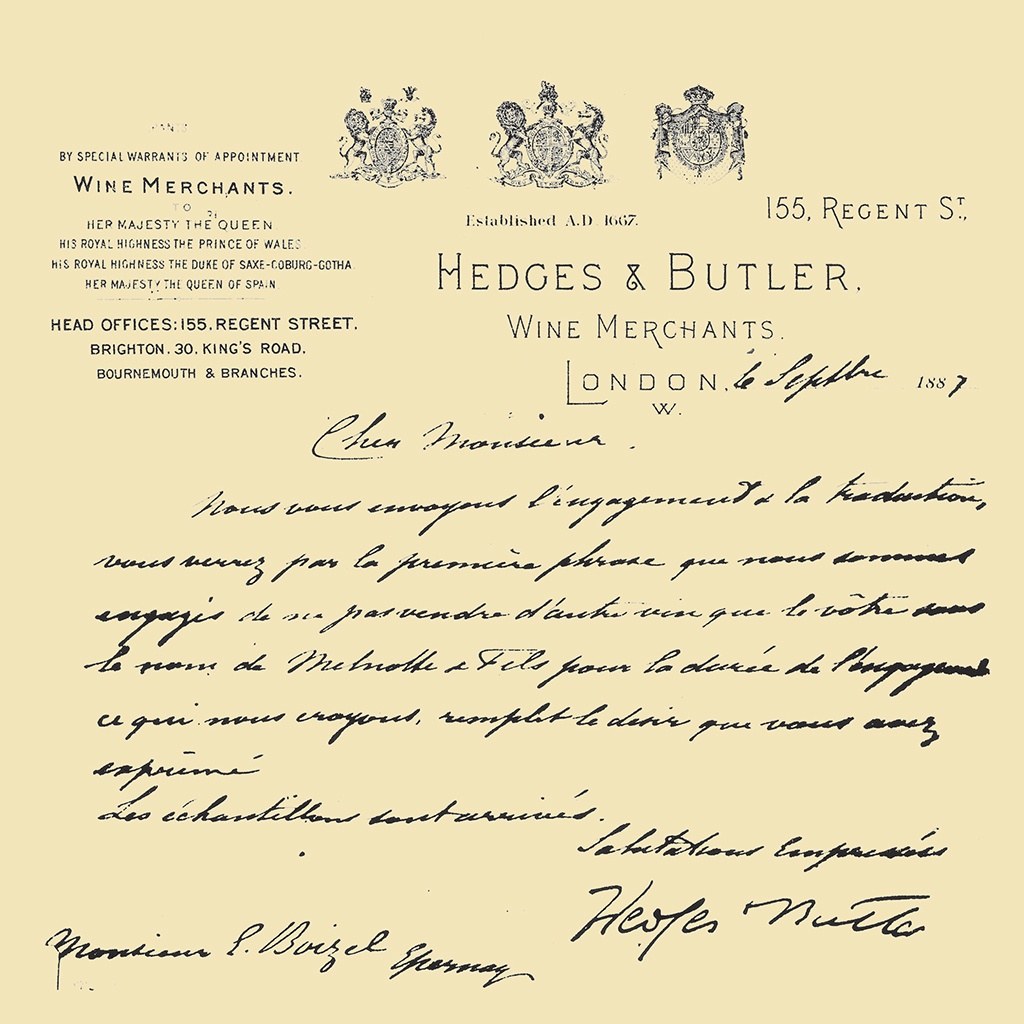 BY SPECIAL WARRANTS OF APPOINTMENT
WINE MERCHANTS.
TO
HER MAJESTY THE QUEEN
HIS ROYAL HIGHNESS THE PRINCE OF WALES
HIS ROYAL HIGHNESS THE DUKE OF SAXE-COBURG-GOTHA
HER MAJESTY THE QUEEN OF SPAIN
HEAD OFFICES: 155, REGENT STREET.
BRIGHTON. 30. KING'S ROAD.
BOURNEMOUTH & BRANCHES.
Established A.D. 1667.
155, REGENT ST,
HEDGES & BUTLER.
WINE MERCHANTS.
LONDON, le Septbre 1887
W.
Cher Monsieur.
Nous vous envoyons l'engagement & la traduction,
vous verrez par la première phrase que nous sommes
engagés de ne pas vendre d'autre vin que le vôtre sous
le nom de & Fils pour la durée de
ce qui nous croyons, remplit le désir que vous avez
exprimé
Les échantillons sont arrivés.
Salutations Empressées
Hedges & Butler
Monsieur E. Boizel Epernay